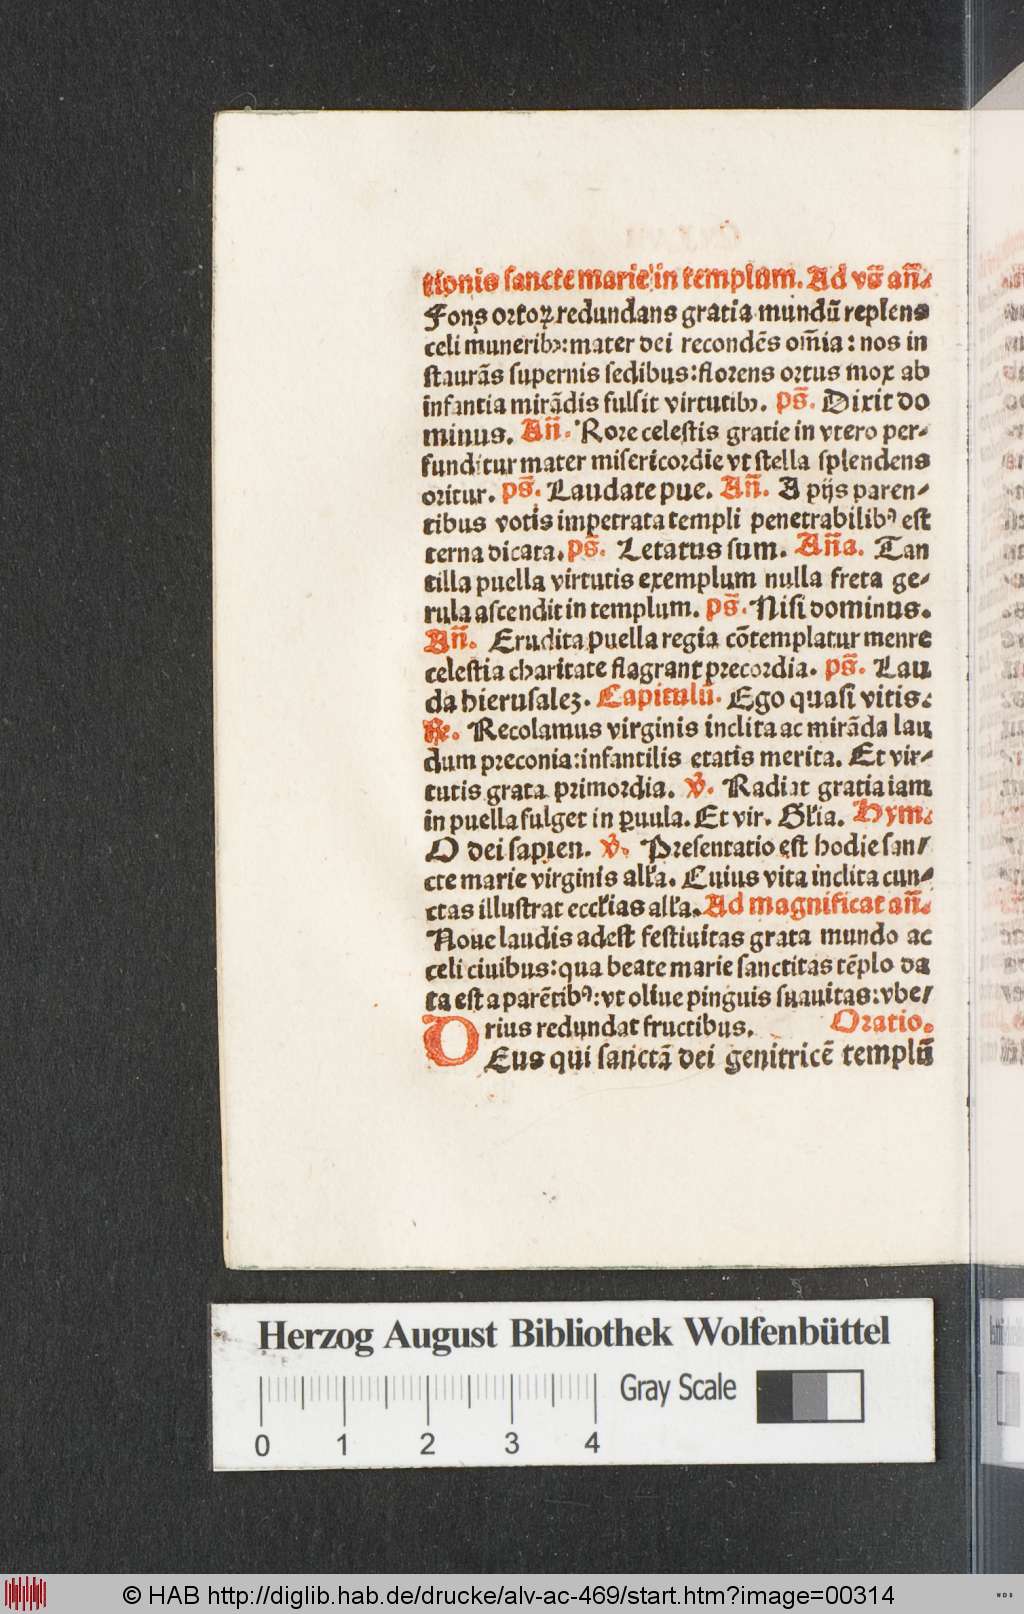 tionis sancte marie in templum. Ad vs̄ an̄.
Fons ortoꝝ redundans gratia mundū replens
celi muneribꝫ: mater dei recondēs om̄ia: nos in
staurās supernis sedibus: florens ortus mox ab
infantia mirādis fulsit virtutibꝫ. ps̄. Dixit do
minus. An̄. Rore celestis gratie in vtero per-
funditur mater misericordie vt stella splendens
oritur. ps̄. Laudate pue. An̄. A pijs paren-
tibus votis impetrata templi penetrabilibꝰ est
terna dicata. ps̄. Letatus sum. An̄a. Tan
tilla puella virtutis exemplum nulla freta ge-
rula ascendit in templum. ps̄. Nisi dominus.
An̄. Erudita puella regia cōtemplatur menre
celestia charitate flagrant precordia. ps̄. Lau
da hierusaleꝫ. Capitulū. Ego quasi vitis.
℟. Recolamus virginis inclita ac mirāda lau
dum preconia: infantilis etatis merita. Et vir-
tutis grata primordia. ℣. Radiat gratia iam
in puella fulget in ꝑuula. Et vir. Głia. Hym.
O dei sapien. ℣. Presentatio est hodie san-
cte marie virginis ałła. Cuius vita inclita cun-
ctas illustrat eccłias ałła. Ad magnificat an̄.
Noue laudis adest festiuitas grata mundo ac
celi ciuibus: qua beate marie sanctitas tēplo da
ta est a parētibꝰ: vt oliue pinguis suauitas: vbe-
rius redundat fructibus. Oratio.
DEus qui sanctā dei genitricē templū
Herzog August Bibliothek Wolfenbüttel
Gray Scale
0 1 2 3 4
© HAB http://diglib.hab.de/drucke/alv-ac-469/start.htm?image=00314